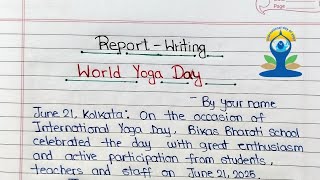 Page
Report-Writing
World Yoga Day
- By your name
June 21, Kolkata: On the occasion of
International Yoga Day, Bikas Bharati school
celebrated the day with great enthusiasm
and active participation from students,
teachers and staff on June 21, 2025.